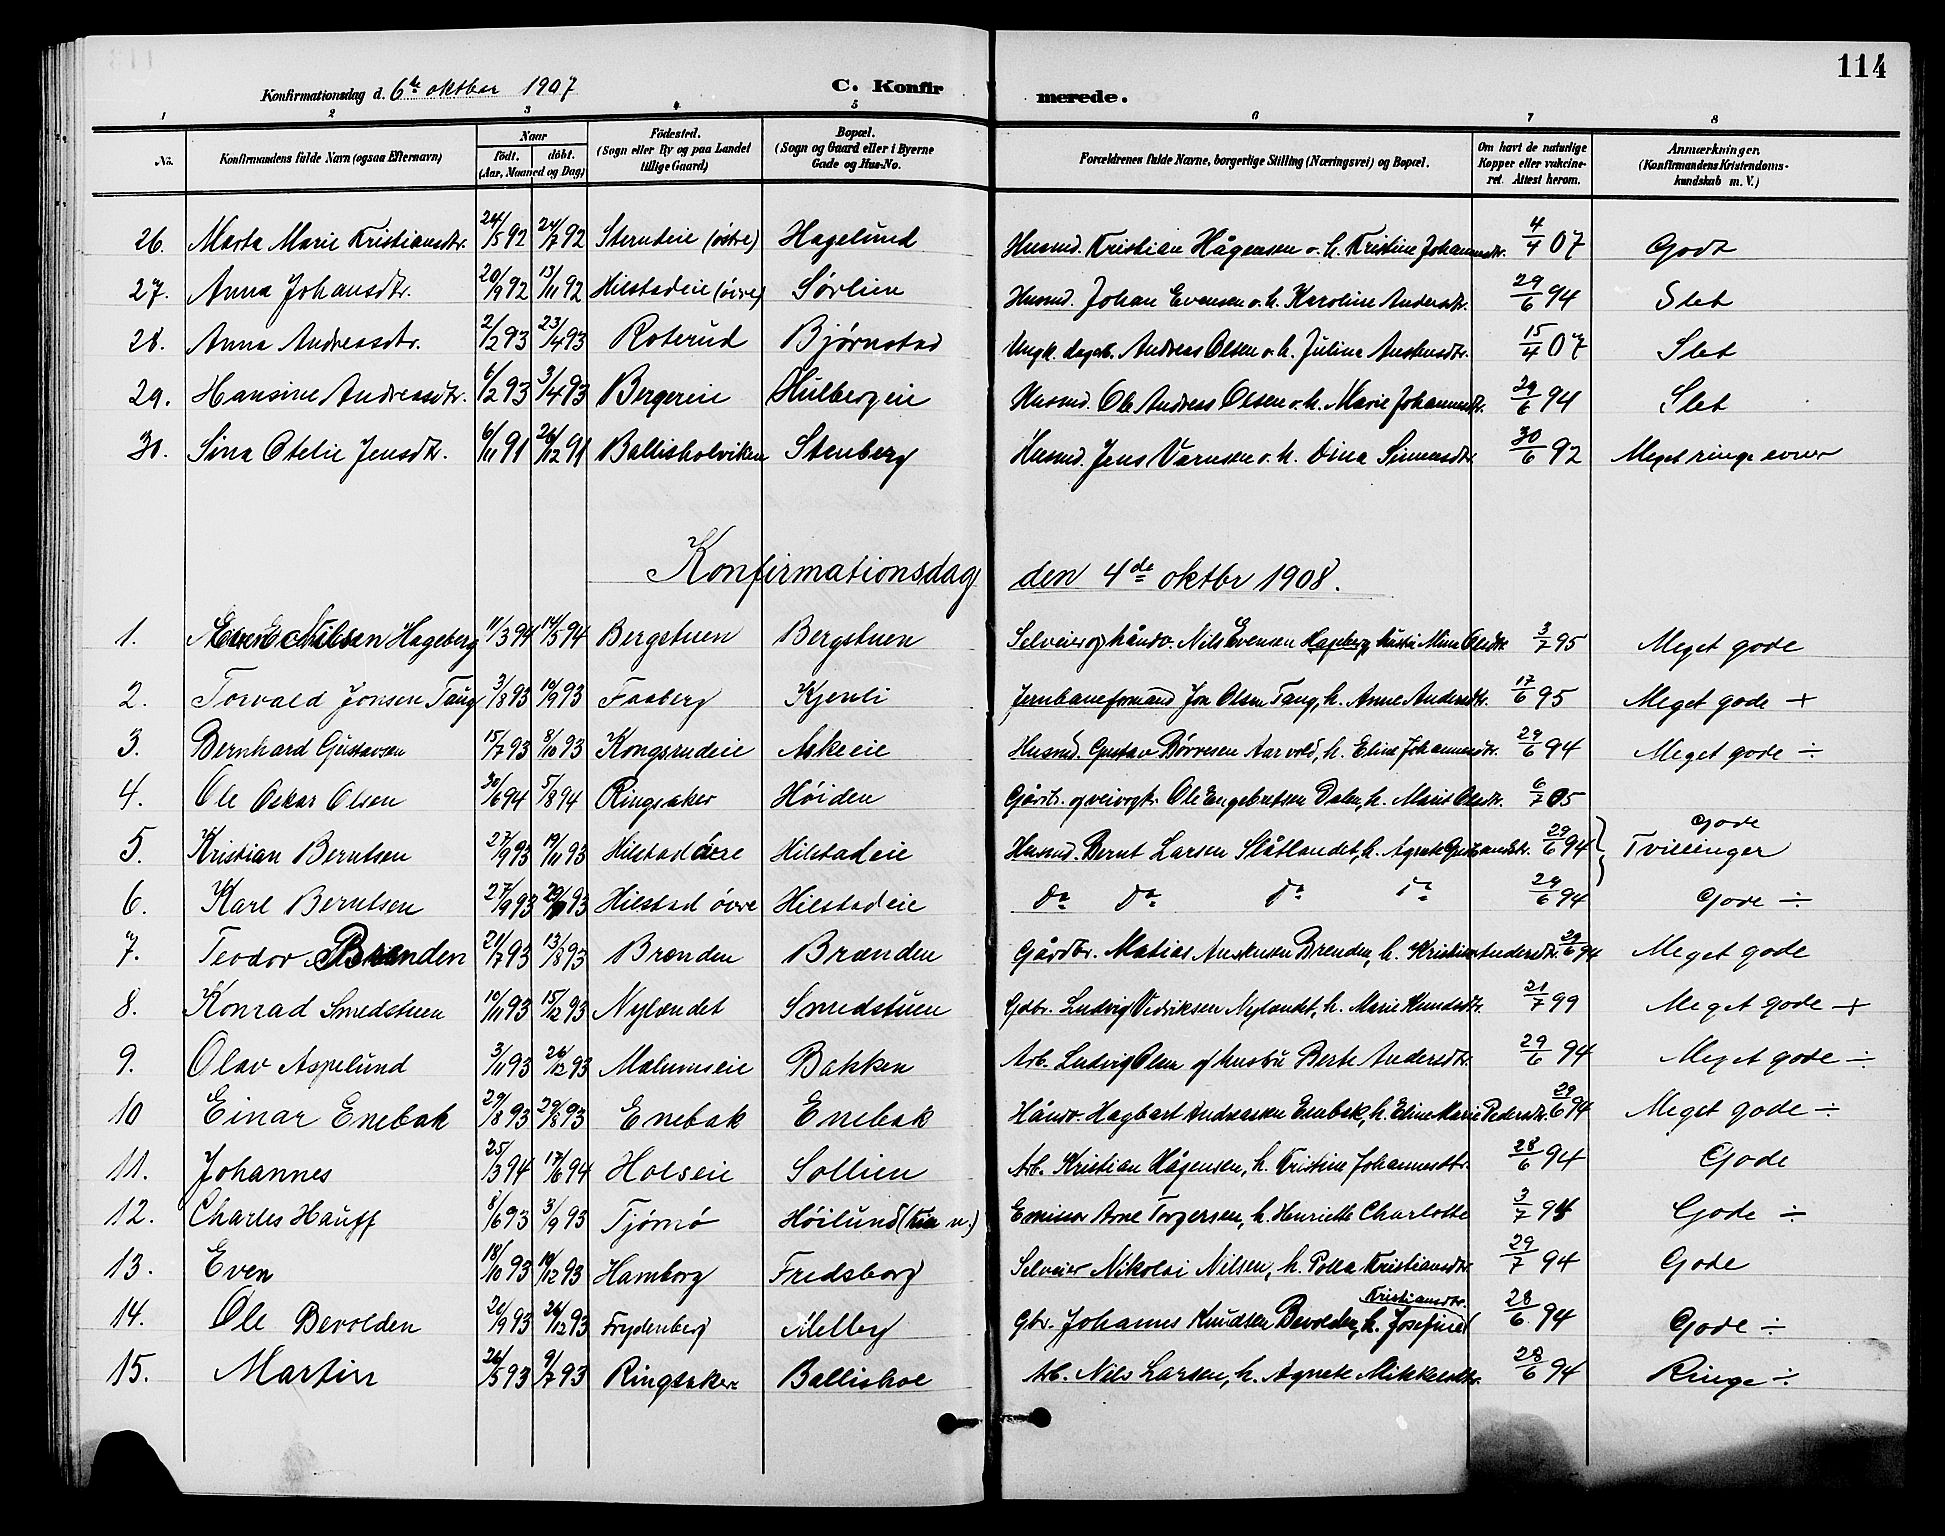 114
Konfirmationsdag d. 6te oktbr 1907 C. Konfirmerede.
1 2 3 4 5 6 7 8
No. Konfirmandens fulde Navn (ogsaa Efternavn) Naar födt. döbt. (Aar, Maaned og Dag) Födested. (Sogn eller By og paa Landet tillige Gaard) Bopæl. (Sogn og Gaard eller i Byerne Gade og Hus-No. Forældrenes fulde Navne, borgerlige Stilling (Næringsvei) og Bopæl. Om havt de naturlige Kopper eller vakcineret. Attest herom. Anmærkninger. (Konfirmandens Kristendomskundskab m. V.)
26. Marta Marie Kristiansdtr. 24/5 92 24/7 92 Sterudeie (östre) Hagelund Husmd. Kristian Hågensen o. h. Kristine Johannesdtr. 4/4 07 Godt
27. Anna Johansdtr. 20/9 92 13/11 92 Hilstadeie (övre) Sørlien Husmd. Johan Evensen o. h. Karoline Andersdtr. 29/6 94 Slet
28. Anna Andreasdtr. 2/2 93 23/4 93 Roterud Bjørnstad Ungk. dagarb. Andreas Olsen o. h. Juline Austensdtr. 15/4 07 Slet
29. Hansine Andreasdtr. 6/2 93 3/4 93 Bergereie Hulbergeie Husmd. Ole Andreas Olsen o. h. Marie Johannesdtr. 29/6 94 Slet
30. Sina Otelie Jensdtr. 6/11 91 26/12 91 Ballisholviken Stenberg Husmd. Jens Larsen o. h. Dina Simensdtr. 30/6 92 Meget ringe evner
Konfirmationsdag den 4de oktbr 1908.
1. Nilsen Hageberg 11/3 94 14/5 94 Bergstuen Bergstuen Selveier og håndv. Nils Evensen Hageberg, hustru Mina Olsdtr. 3/7 95 Meget gode
2. Torvald Jonsen Taug 3/8 93 10/9 93 Faaberg Kjenli Jernbaneformand Jon Olsen Taug, h. Anne Andersdtr. 17/6 95 Meget gode +
3. Bernhard Gustavsen 15/7 93 8/10 93 Kongsrudeie Askeeie Husmd. Gustav Börresen Aarvold, h. Eline Johannesdtr. 29/6 94 Meget gode ÷
4. Ole Oskar Olsen 30/6 94 5/8 94 Ringsaker Höiden Gårdbr. og veivogt. Ole Engebretsen Dalen, h. Marit Olsdtr. 6/7 05
5. Kristian Berntsen 27/9 93 19/11 93 Hilstad övre Hilstadeie Husmd. Bernt Larsen Slåtlandet, h. Agnete 29/6 94 Gode Tvillinger
6. Karl Berntsen 27/9 93 93 Hilstad övre Hilstadeie Do Do Do Do 29/6 94 Gode ÷
7. Teodor Brænden 21/7 93 13/8 93 Brænden Brænden Gårdbr. Matias Austensen Brenden, h. Kristine Andersdtr. 29/6 94 Meget gode
8. Konrad Smedstuen 10/11 93 15/12 93 Nylændet Smedstuen Gdbr. Ludvig Nylændet, h. Marie Knudsdtr. 21/7 99 Meget gode +
9. Olav Aspelund 3/11 93 26/12 93 Malumseie Bakken Arb. Ludvig Olsen og hustru Berte Andersdtr. 29/6 94 Meget gode ÷
10 Einar Enebak 29/8 93 93 Enebak Enebak Håndv. Hagbart Andreasen Enebak, h. Eline Marie Pedersdtr. 29/6 94 Meget gode ÷
11. Johannes 25/3 94 17/6 94 Holseie Sollien Arb. Kristian Hågensen, h. Kristine Johannesdtr. 28/6 94 Gode
12. Charles Hauff 8/6 93 3/9 93 Tjömö Höilund Emissær Arne Torgersen, h. Henriette Charlotte 3/7 94 Gode ÷
13. Even 18/10 93 10/12 93 Hamborg Fredsborg Selveier Nikolai Nilsen, h. Kristiansdtr. 29/7 94 Gode
14. Ole Bevolden 20/9 93 26/12 93 Frydenberg Melby Gbr. Johannes Knudsen Bevolden, h. Josefine Kristiansdtr. 28/6 94 Gode ÷
15. Martin 26/5 93 9/7 93 Ringsaker Ballishol Arb. Nils Larsen, h. Agnete Mikkelsdtr. 28/6 94 Ringe ÷